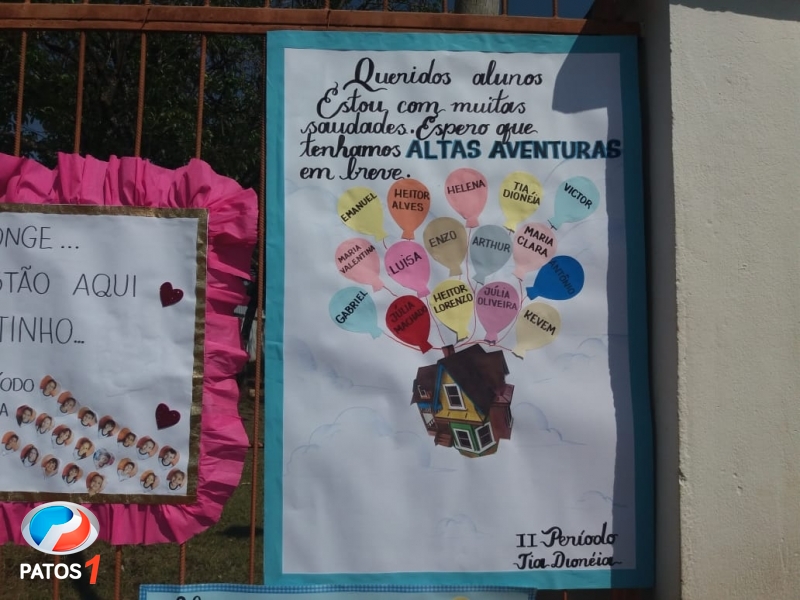 Queridos alunos
Estou com muitas
saudades. Espero que
tenhamos ALTAS AVENTURAS
em breve.
EMANUEL
HEITOR
ALVES
HELENA
TIA
DIONÉIA
VICTOR
MARIA
VALENTINA
LUISA
ENZO
ARTHUR
MARIA
CLARA
ANTÔNIO
GABRIEL
JÚLIA
MACHADO
HEITOR
LORENZO
JÚLIA
OLIVEIRA
KEVEM
II Período
Tia Dionéia
ONGE ...
STÃO AQUI
TINHO...
ÍODO
A
PATOS 1